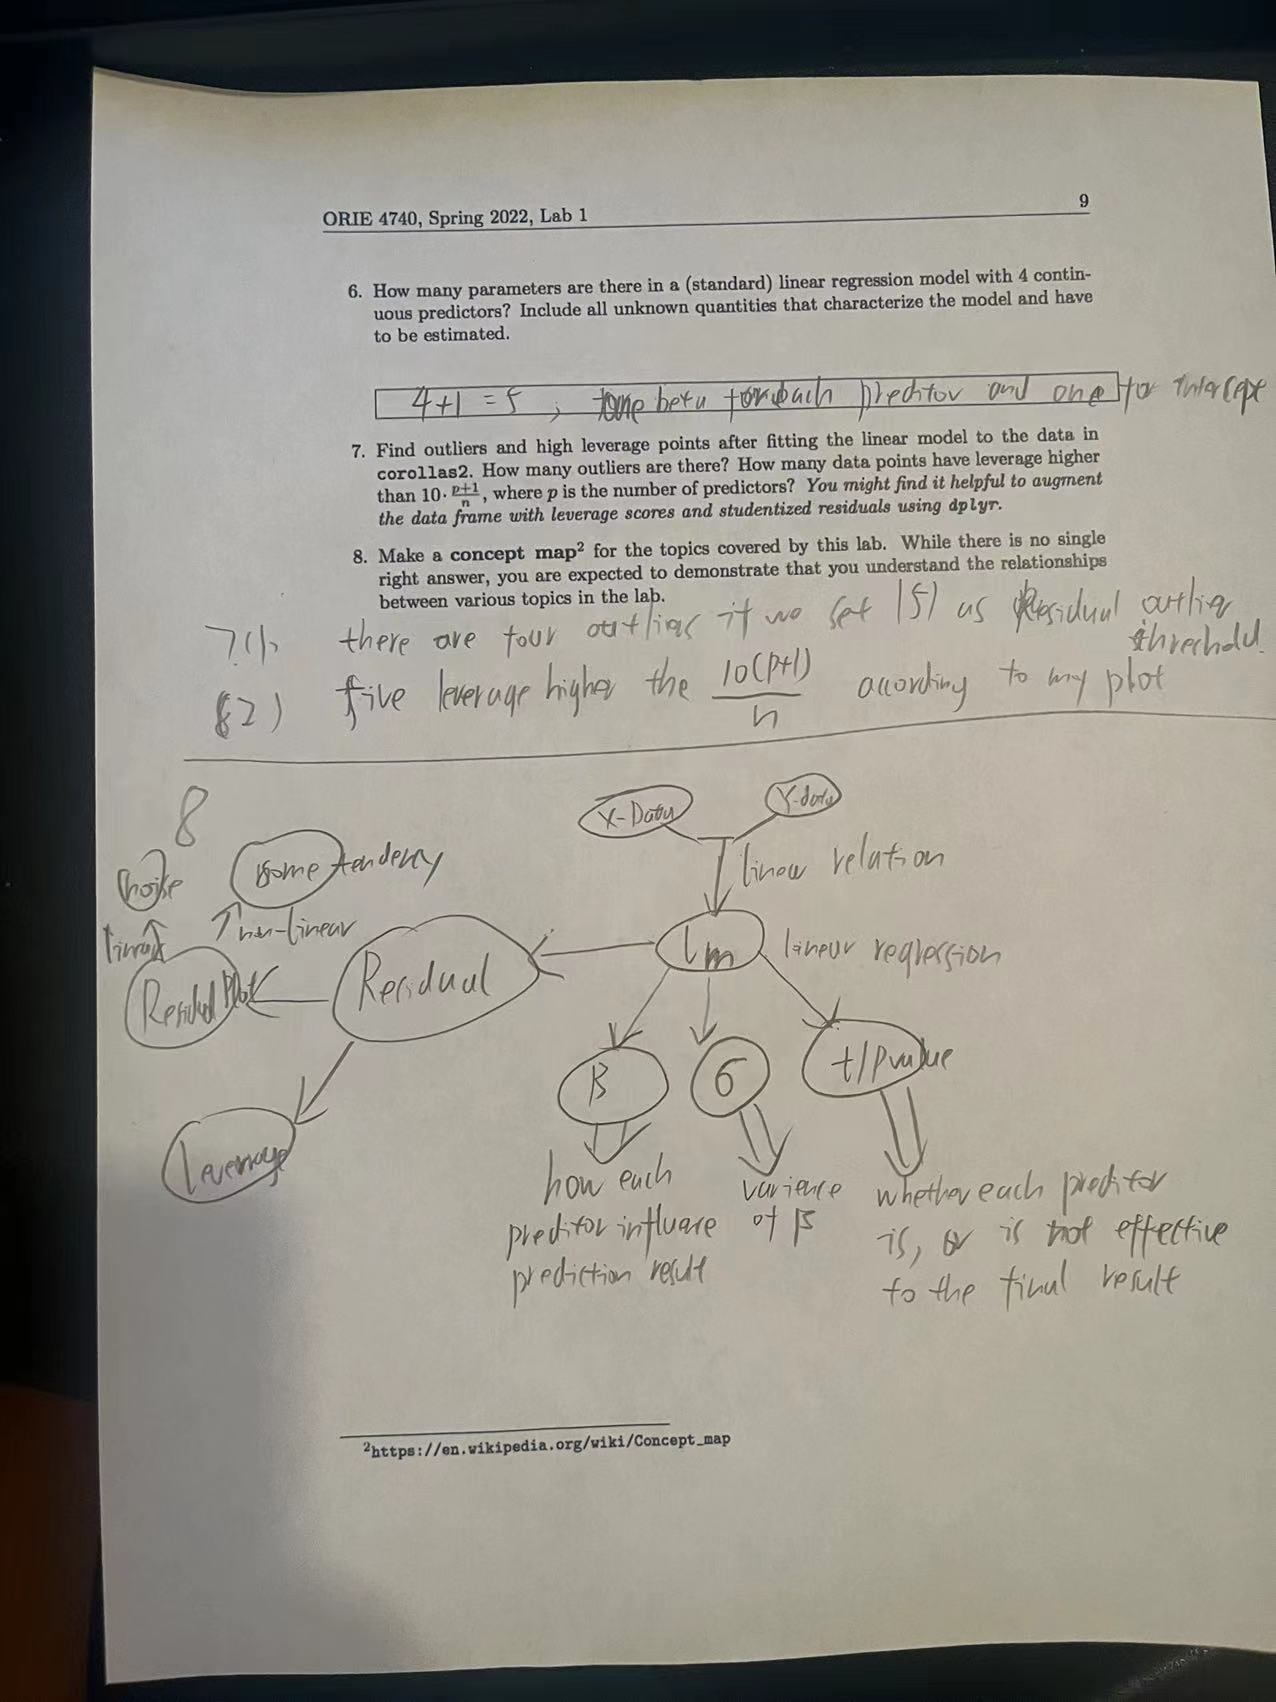 ORIE 4740, Spring 2022, Lab 1
9
6. How many parameters are there in a (standard) linear regression model with 4 contin-
uous predictors? Include all unknown quantities that characterize the model and have
to be estimated.
4+1 = 5 , one beta for each preditor and one for intercept
7. Find outliers and high leverage points after fitting the linear model to the data in
corollas2. How many outliers are there? How many data points have leverage higher
than 10 · p+1/n, where p is the number of predictors? You might find it helpful to augment
the data frame with leverage scores and studentized residuals using dplyr.
8. Make a concept map² for the topics covered by this lab. While there is no single
right answer, you are expected to demonstrate that you understand the relationships
between various topics in the lab.
7(1) there are four outliers if we set |5| as Residual outlier
threshold.
(2) five leverage higher the 10(p+1)/n according to my plot
8
X-Data
Y-data
linear relation
some tendency
non-linear
linear
lm
linear regression
Residual
Residual Plot
β
6
t/p value
Leverage
how each
preditor influare
prediction result
varience
of β
whether each preditor
is, or is not effective
to the final result
²https://en.wikipedia.org/wiki/Concept_map